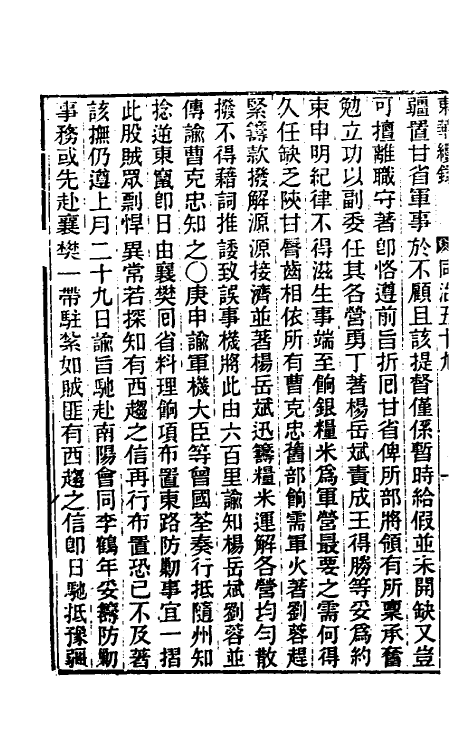 東華續錄 同治五十九
疆置甘省軍事於不顧且該提督僅係暫時給假並未開缺又豈
可擅離職守著卽恪遵前旨折囘甘省俾所部將領有所稟承奮
勉立功以副委任其各營勇丁著楊岳斌責成王得勝等妥爲約
束申明紀律不得滋生事端至餉銀糧米爲軍營最要之需何得
久任缺乏陝甘脣齒相依所有曹克忠舊部餉需軍火著劉蓉趕
緊籌款撥解源源接濟並著楊岳斌迅籌糧米運解各營均勻散
撥不得藉詞推諉致誤事機將此由六百里諭知楊岳斌劉蓉並
傳諭曹克忠知之〇庚申諭軍機大臣等曾國荃奏行抵隨州知
捻逆東竄卽日由襄樊囘省料理餉項布置東路防勦事宜一摺
此股賊眾剽悍異常若探知有西趨之信再行布置恐已不及著
該撫仍遵上月二十九日諭旨馳赴南陽會同李鶴年妥籌防勦
事務或先赴襄樊一帶駐紮如賊匪有西趨之信卽日馳抵豫疆